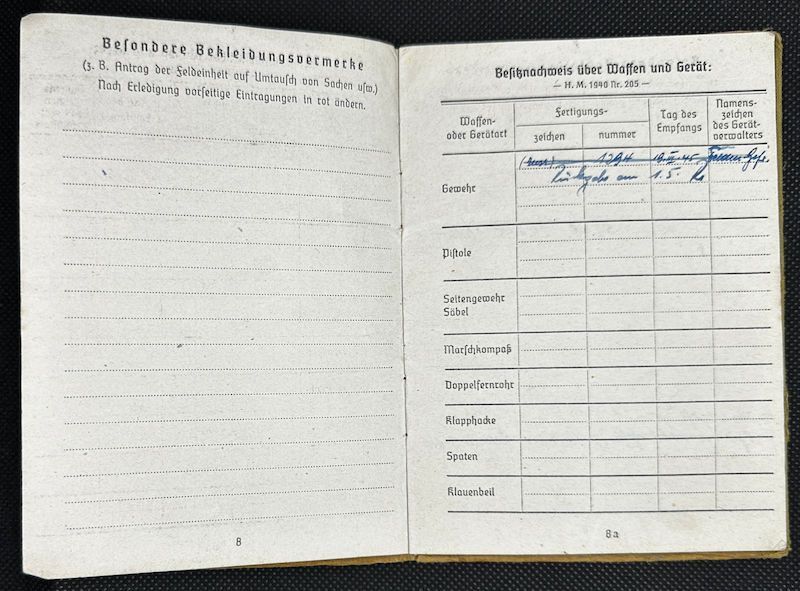 Besondere Bekleidungsvermerke
(z. B. Antrag der Feldeinheit auf Umtausch von Sachen usw.)
Nach Erledigung vorseitige Eintragungen in rot ändern.
8
Besitznachweis über Waffen und Gerät:
— H. M. 1940 Nr. 205 —
Waffen- oder Gerätart
Fertigungs-
zeichen
nummer
Tag des Empfangs
Namens-zeichen des Gerät-verwalters
Gewehr
1294
Rückgabe am 1.5.
Pistole
Seitengewehr
Säbel
Marschkompaß
Doppelfernrohr
Klapphacke
Spaten
Klauenbeil
8a